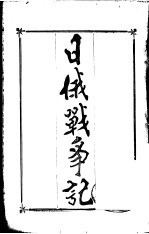 日俄戰爭記